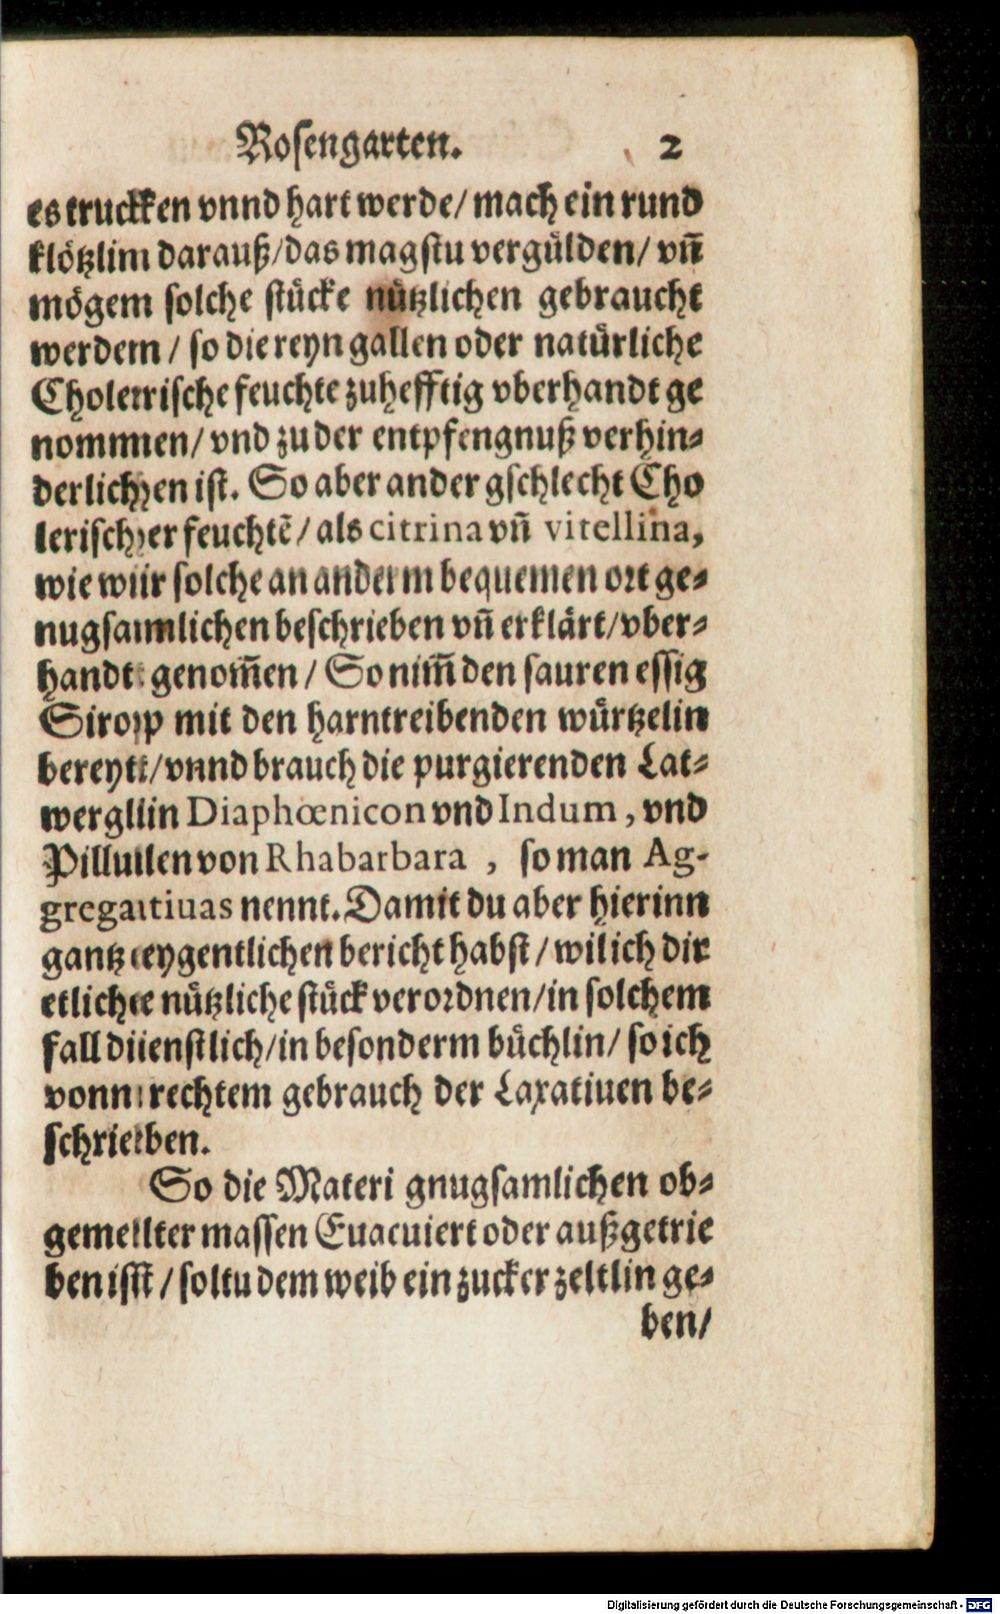 Rosengarten. 2
es trucken vnnd hart werde/ mach ein rund
klötzlin darauß/das magstu vergülden/ vñ
mögem solche stücke nützlichen gebraucht
werdern / so die reyn gallen oder natürliche
Cholerische feuchte zuhefftig vberhandt ge
nommen/ vnd zu der entpfengnuß verhin⸗
derlichen ist. So aber ander gschlecht Cho
lerischer feuchtē / als citrina vñ vitellina,
wie wiir solche an anderm bequemen ort ge⸗
nugsamlichen beschrieben vñ erklärt/vber⸗
handt genom̄en / So nim̄ den sauren essig
Sirop mit den harntreibenden würtzelin
bereytt/vnnd brauch die purgierenden Lat⸗
werglin Diaphœnicon vnd Indum , vnd
Pillulen von Rhabarbara , so man Ag-
gregatiuas nennt. Damit du aber hierinn
gantz eygentlichen bericht habst / wil ich dir
etliche nützliche stück verordnen/in solchem
fall dienstlich/in besonderm büchlin/ so ich
vonn rechtem gebrauch der Laxatiuen be⸗
schrieben.
So die Materi gnugsamlichen ob⸗
gemelter massen Euacuiert oder außgetrie
ben isst / soltu dem weib ein zucker zeltlin ge⸗
ben/
Digitalisierung gefördert durch die Deutsche Forschungsgemeinschaft - DFG